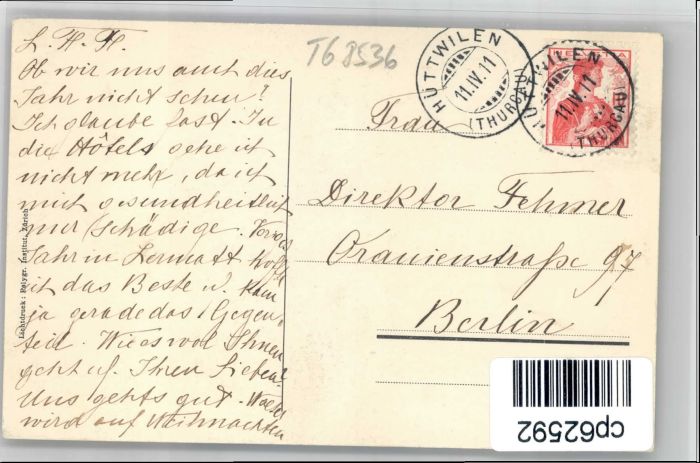 L. H. H.
Ob wir uns auch dies
Jahr nicht sehen?
Ich glaube fast. In
die Hôtels gehe ich
nicht mehr, da ich
mich gesundheitlich
nur schädige. Voriges
Jahr in Zermatt hoffte
ich das Beste u. kam
ja gerade das Gegen-
teil. Wie es wol Ihnen
geht u. Ihren Lieben?
Uns gehts gut.
wird auf Weihnachten
Lichtdruck: Polygr. Institut, Zürich
T68536
HÜTTWILEN
11.IV.11
(THURGAU)
HELVETIA
HÜTTWILEN
11.IV.11
(THURGAU)
Frau
Direktor Fehmer
Oranienstraße 97
Berlin
cp62592